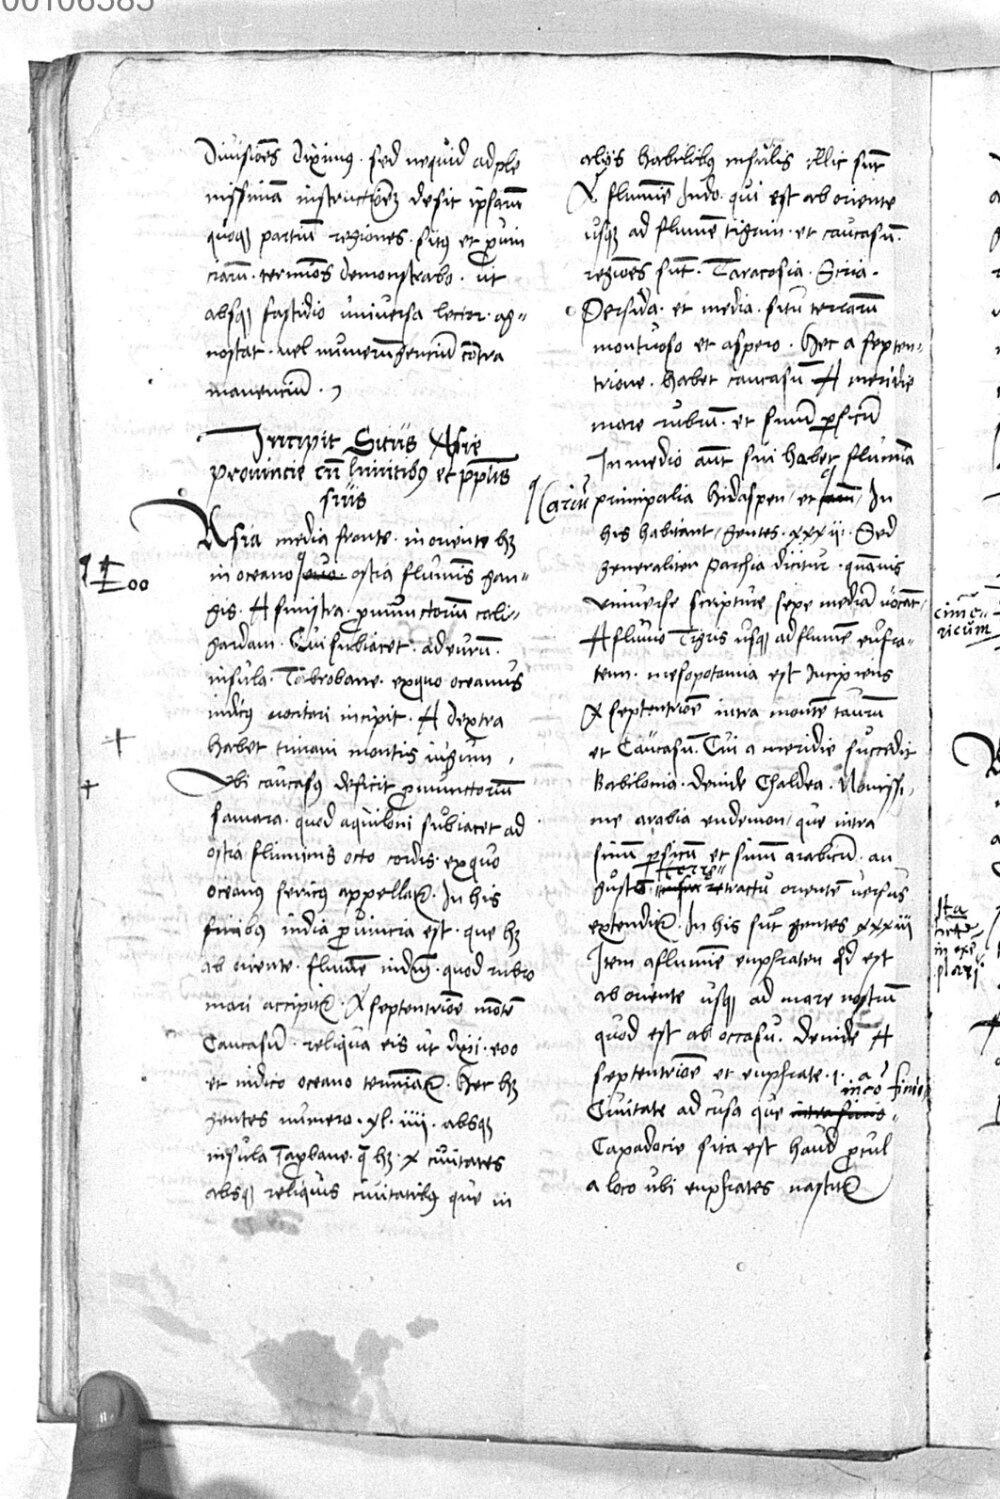 00106385
Diuisiões diximus · sed nequid ad ple
nissimã instructiõeȝ desit ipsarũ
quoqȝ partiũ · regiones · situs et prouin
ciarũ · terminos demonstrabo · ut
absqȝ fastidio uniuersa lector · ag=
noscat · uel numerũ genciũ contra
manenciũ ·
Incipit Situs Asie
prouincie cũ limitibus et pplis
suis
Asia media fronte · in oriente hȝ
Eoo
in oceano ostia fluminis gan=
gis · A sinistra promunctoriũ cali=
gardam · Cui subiacet · ad eurum ·
insula · Tabrobane · ex quo oceanus
indicus uocitari incipit · A dextra
habet timaui montis iugum ,
Vbi caucasus deficit promunctoriũ
samara · quod aquiloni subiacet ad
ostia fluminis octo cordis · ex quo
oceanus sericus appellatur · In his
finibus india prouincia est · que hȝ
ab oriente · flumẽ indum · quod rubro
mari accipitur · A septentriõe mõtẽ
Caucasum · reliqua eis ut dixi · eoo
et indico oceano terminatur · Hec hȝ
gentes numero · xl · iiii · absqȝ
insula Taprobane · q̃ hȝ · x ciuitates
absqȝ reliquis ciuitatibus que in
alijs habilibus insulis illic sunt
A flumine Indo · qui est ab oriente
usqȝ ad flumẽ tigrin · et caucasũ ·
regiões sũt · Taracosia · Siria ·
Persida · et media · situ terrarũ
montuoso et aspero · Hec a septen=
trione · habet caucasũ A meridie
mare rubrũ · et sinũ persicũ
In medio aũt sui habet flumina
Cariũ
principalia hidaspen / et / In
his habitant / gentes · xxxii · Sed
generaliter Parthia dicitur · quamuis
uniuerse scripture sepe mediã uocãt /
A fluuio Tigris usqȝ ad flumẽ eufra=
tem · mesopotamia est Incipiens
A septentriõe intra montẽ taurũ
et Caucasũ · Cui a meridie succedit
Babilonia · deinde Chaldea · Nouissi=
me arabia eudemon / que intra
sinũ persicũ et sinũ arabicũ · an
terre
gusto · tractu orientẽ uersus
extenditur · In his sũt gentes xxxiii
Item a flumine euphraten qd est
ab oriente usqȝ ad mare nostrũ
quod est ab occasu · deinde A
septentriõe et euphrate · i · a
Ciuitate ad cusa que
Capadocie sita est haud procul
a loco ubi euphrates nascitur
cime=
ricum
Ita